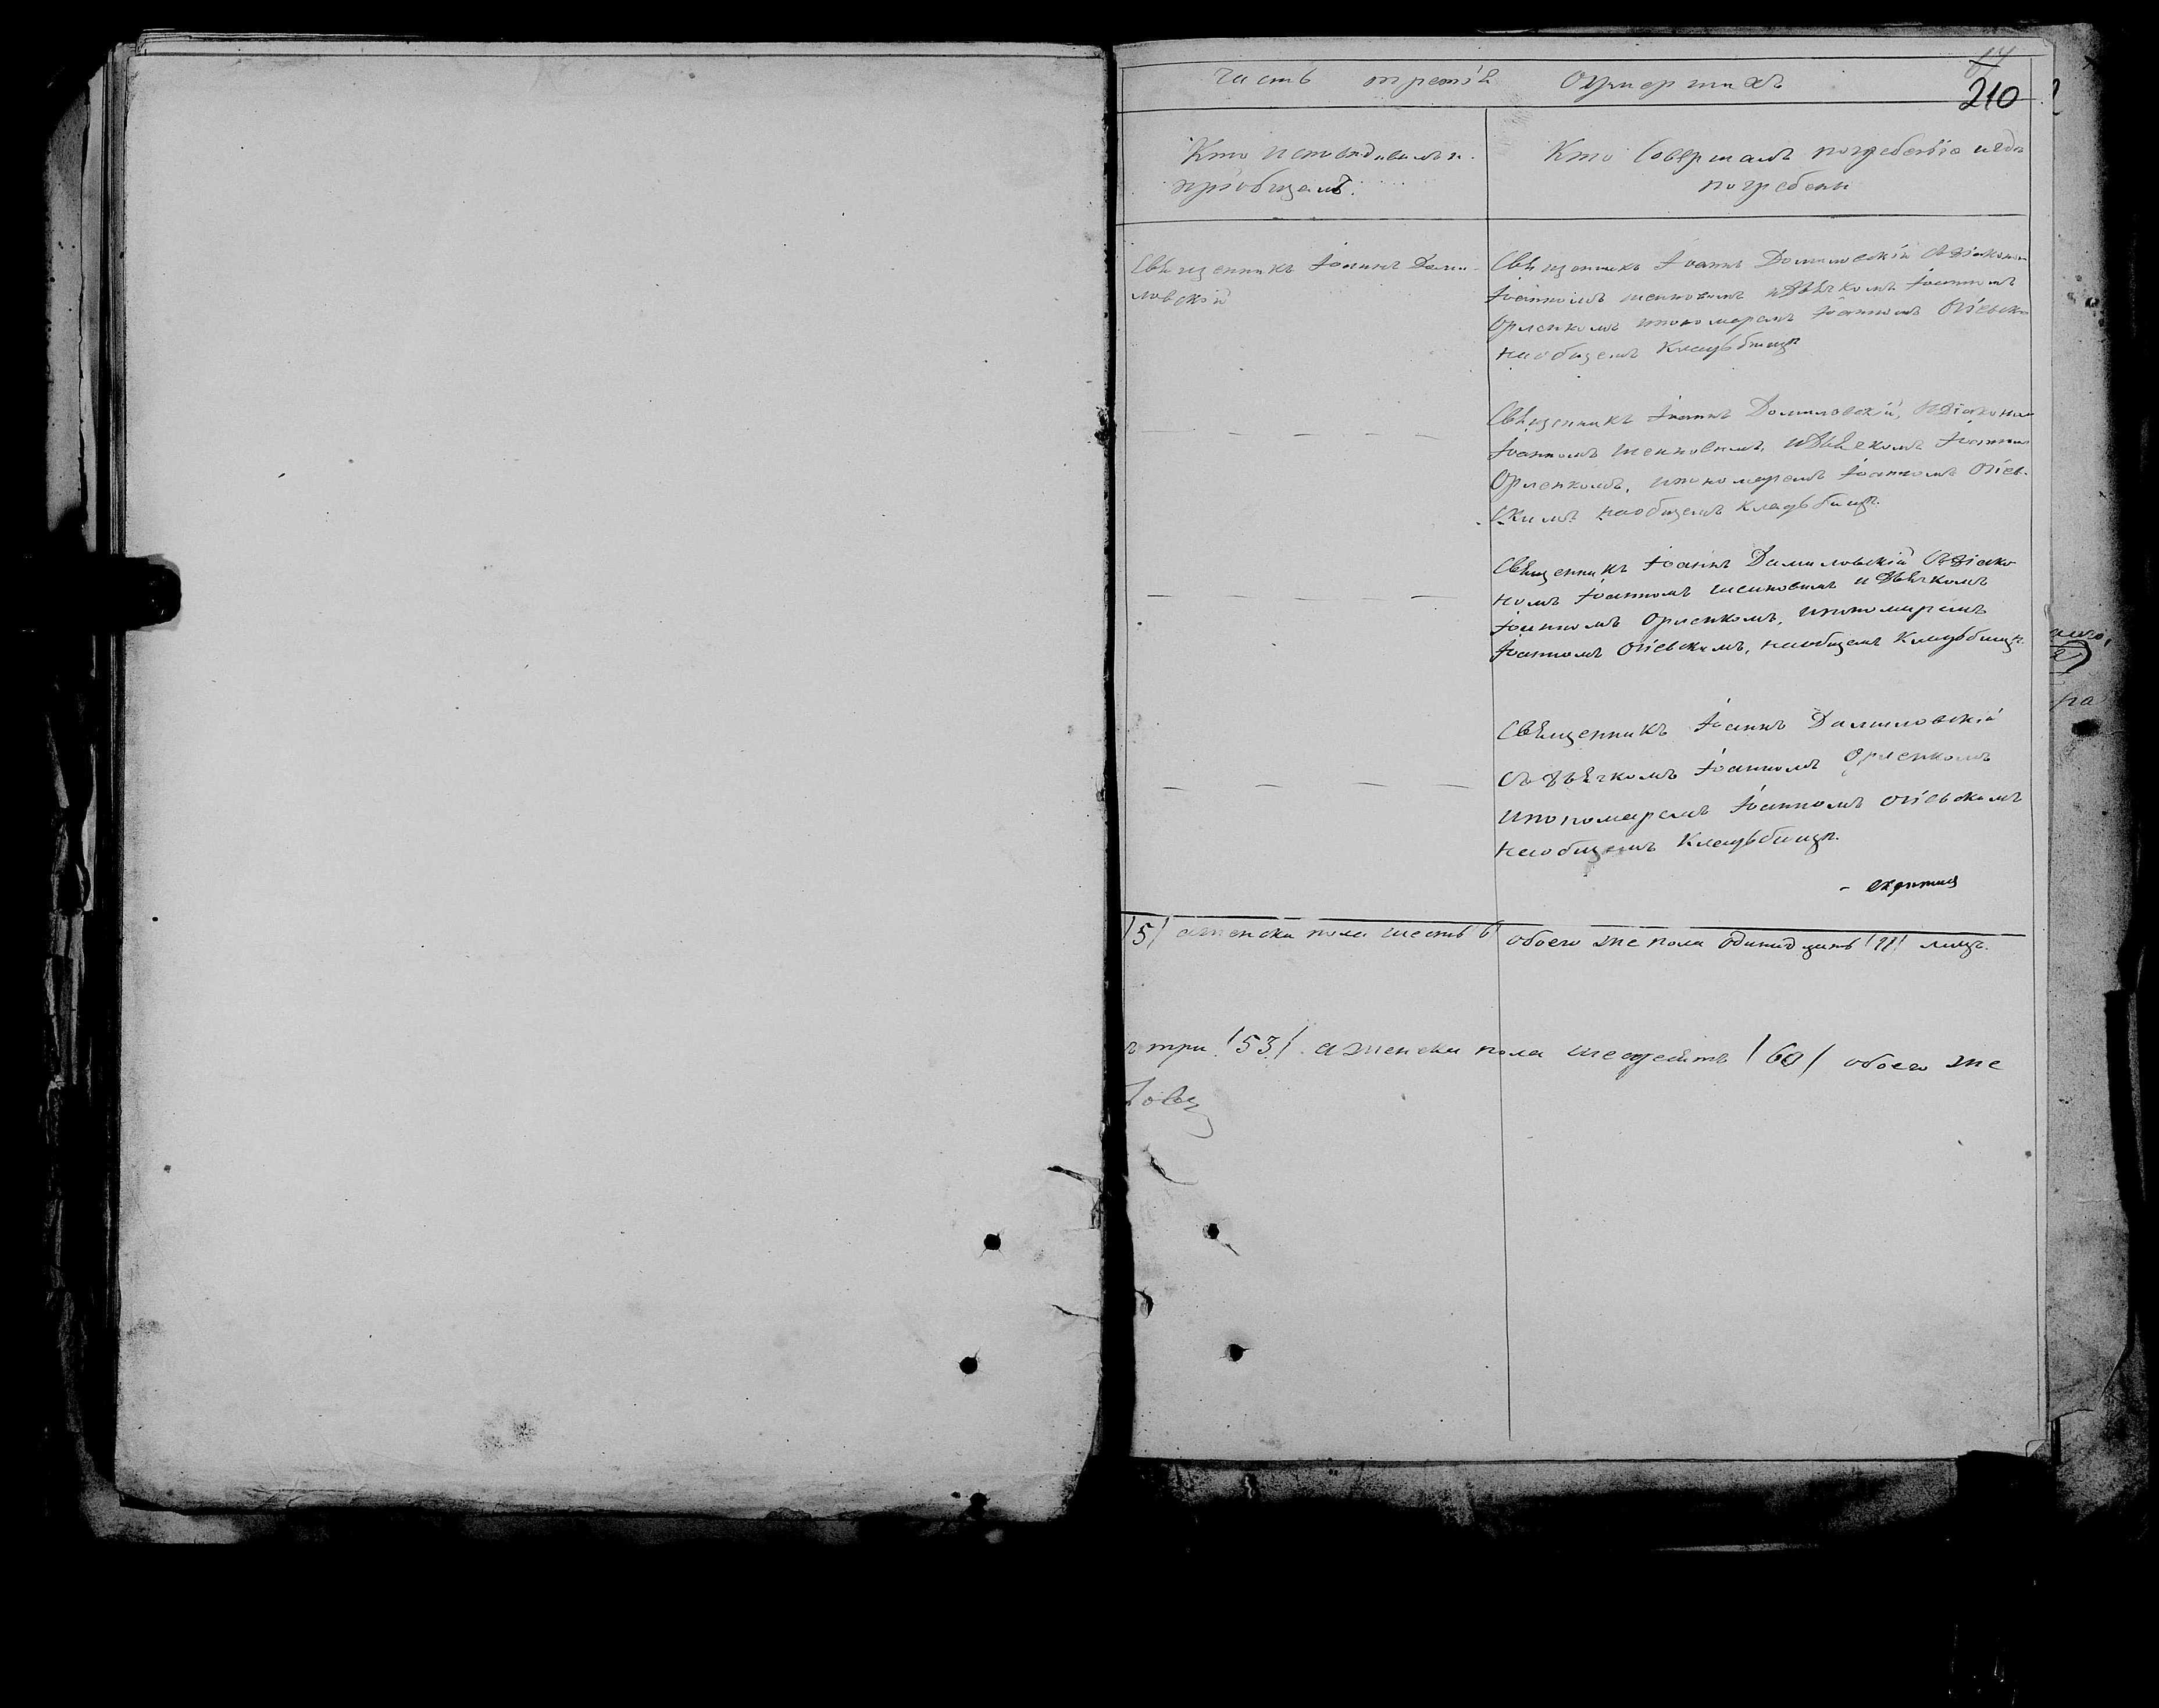 часть третія Оумершихъ
210
Кто исповѣдывалъ и
пріобщалъ.
Кто совершалъ погребеніе и гдѣ
погребены
Свѣщенникъ Іоаннъ Дами-
ловскій
Свѣщенникъ Іоаннъ Дамиловскій съ діяконом
Іоанномъ шеиновымъ и дьѣчкомъ Іоанномъ
Орленкомъ и пономаремъ Іоанномъ
на общемъ кладьбищѣ
Свѣщенникъ Іоаннъ Дамиловскій, съ діяконом
Іоанномъ шеиновымъ, и дьѣчкомъ Іоанном
Орленкомъ, и пономаремъ Іоанномъ Огіев-
скимъ на общемъ кладьбищѣ.
Свѣщенникъ Іоаннъ Дамиловскій съ діяко
номъ Іоанномъ шеиновымъ и дьѣчкомъ
Іоанномъ Орленкомъ, и пономаремъ
Іоанномъ Огіевскимъ, на общемъ кладьбищѣ.
Свѣщенникъ Іоаннъ Дамиловскій
съ дьѣчкомъ Іоанномъ Орленкомъ
и пономаремъ Іоанномъ Огіевскимъ
на общемъ кладьбищѣ.
/5/ а женска пола шесть 6 обоего же пола одинадцать /11/ лицъ.
три /53/ а женска пола шесдесятъ /60/ обоего же